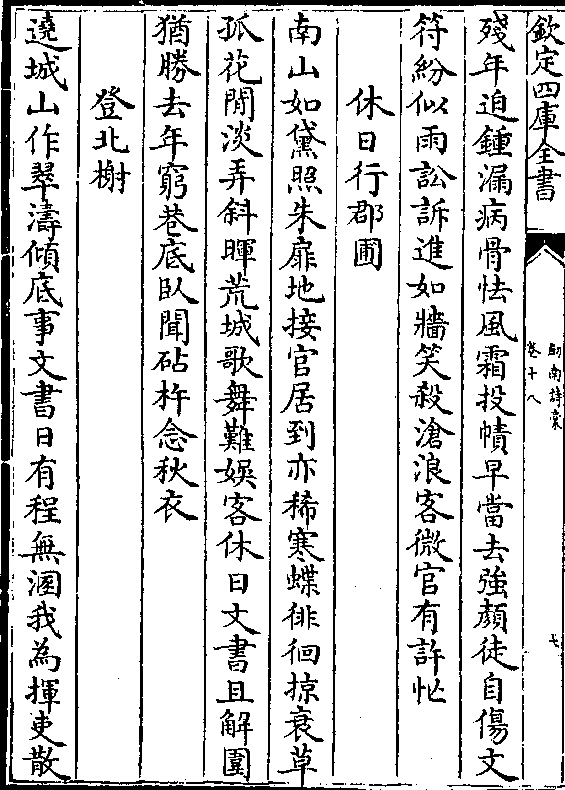 欽定四庫全書
劍南詩稾
卷十八
七
殘年迫鍾漏病骨怯風霜投幘早當去強顔徒自傷文
符紛似雨訟訴進如牆笑殺滄浪客微官有許忙
休日行郡圃
南山如黛照朱扉地接官居到亦稀寒蝶徘徊掠衰草
孤花閒淡弄斜暉荒城歌舞難娛客休日文書且解圍
猶勝去年窮巷底臥聞砧杵念秋衣
登北榭
遶城山作翠濤傾底事文書日有程無溷我為揮吏散